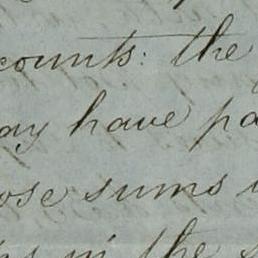 counts: the
ay have pa
ose sums
in the